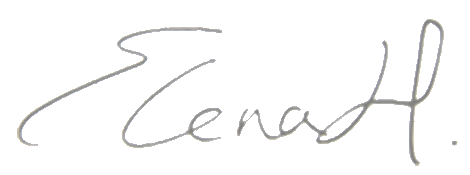 Elena H.